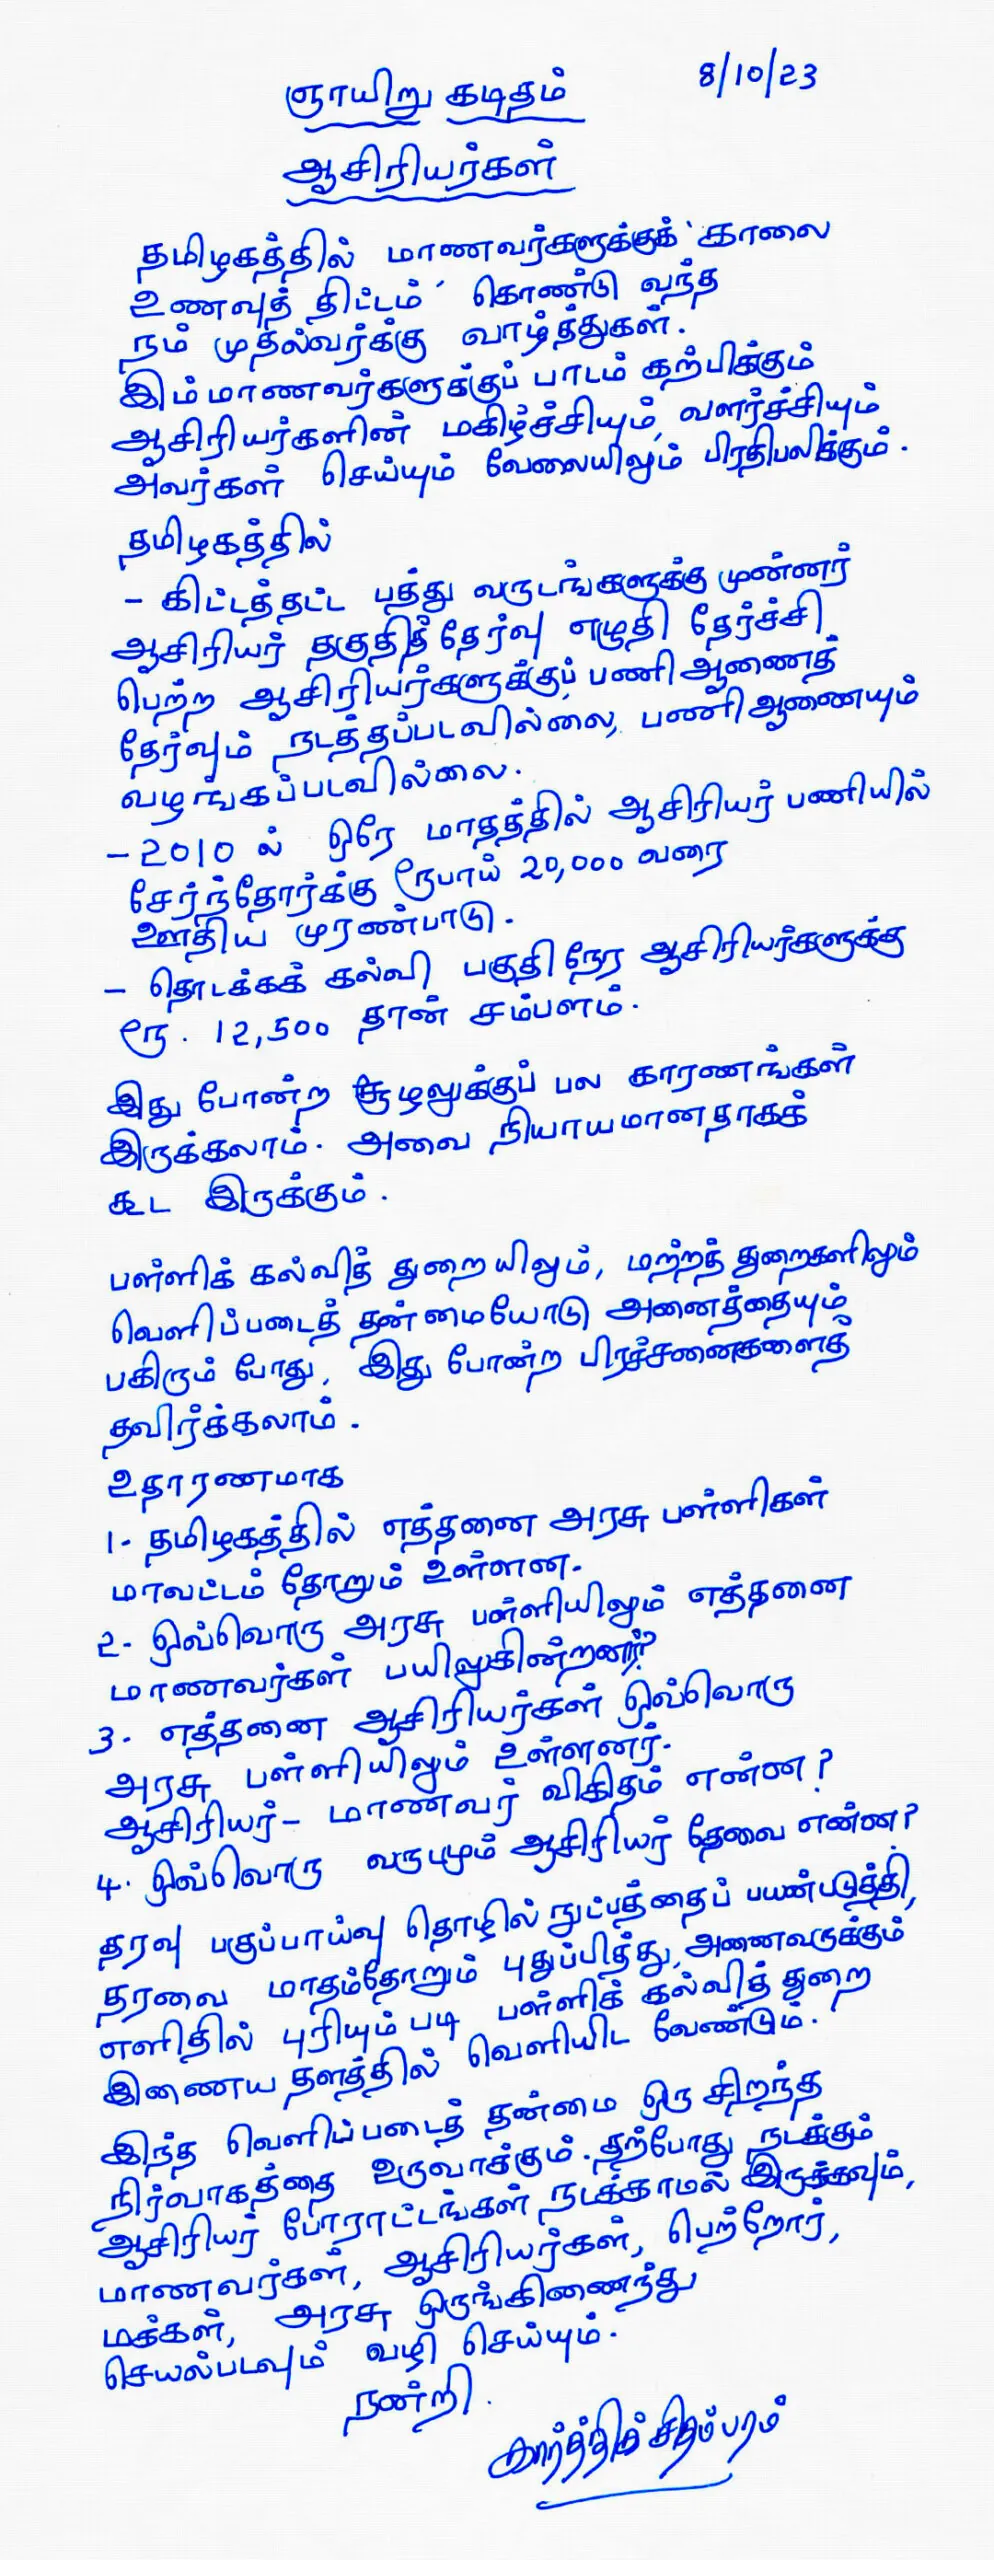 ஞாயிறு கடிதம் 8/10/23
ஆசிரியர்கள்
தமிழகத்தில் மாணவர்களுக்குக் 'காலை
உணவுத் திட்டம்' கொண்டு வந்த
நம் முதல்வர்க்கு வாழ்த்துகள்.
இம்மாணவர்களுக்குப் பாடம் கற்பிக்கும்
ஆசிரியர்களின் மகிழ்ச்சியும், வளர்ச்சியும்
அவர்கள் செய்யும் வேலையிலும் பிரதிபலிக்கும்.
தமிழகத்தில்
- கிட்டத்தட்ட பத்து வருடங்களுக்கு முன்னர்
ஆசிரியர் தகுதித்தேர்வு எழுதி தேர்ச்சி
பெற்ற ஆசிரியர்களுக்குப் பணி ஆணைத்
தேர்வும் நடத்தப்படவில்லை, பணி ஆணையும்
வழங்கப்படவில்லை.
- 2010 ல் ஒரே மாதத்தில் ஆசிரியர் பணியில்
சேர்ந்தோர்க்கு ரூபாய் 20,000 வரை
ஊதிய முரண்பாடு.
- தொடக்கக் கல்வி பகுதிநேர ஆசிரியர்களுக்கு
ரூ. 12,500 தான் சம்பளம்.
இது போன்ற சூழலுக்குப் பல காரணங்கள்
இருக்கலாம். அவை நியாயமானதாகக்
கூட இருக்கும்.
பள்ளிக் கல்வித் துறையிலும், மற்றத் துறைகளிலும்
வெளிப்படைத் தன்மையோடு அனைத்தையும்
பகிரும் போது, இது போன்ற பிரச்சனைகளைத்
தவிர்க்கலாம்.
உதாரணமாக
1- தமிழகத்தில் எத்தனை அரசு பள்ளிகள்
மாவட்டம் தோறும் உள்ளன.
2- ஒவ்வொரு அரசு பள்ளியிலும் எத்தனை
மாணவர்கள் பயிலுகின்றனர்?
3- எத்தனை ஆசிரியர்கள் ஒவ்வொரு
அரசு பள்ளியிலும் உள்ளனர்.
ஆசிரியர் - மாணவர் விகிதம் என்ன?
4. ஒவ்வொரு வருடமும் ஆசிரியர் தேவை என்ன?
தரவு பகுப்பாய்வு தொழில்நுட்பத்தைப் பயன்படுத்தி,
தரவை மாதம்தோறும் புதுப்பித்து, அனைவருக்கும்
எளிதில் புரியும்படி பள்ளிக் கல்வித் துறை
இணைய தளத்தில் வெளியிட வேண்டும்.
இந்த வெளிப்படைத் தன்மை ஒரு சிறந்த
நிர்வாகத்தை உருவாக்கும். தற்போது நடக்கும்
ஆசிரியர் போராட்டங்கள் நடக்காமல் இருக்கவும்,
மாணவர்கள், ஆசிரியர்கள், பெற்றோர்,
மக்கள், அரசு ஒருங்கிணைந்து
செயல்படவும் வழி செய்யும்.
நன்றி.
கார்த்திக் சிதம்பரம்